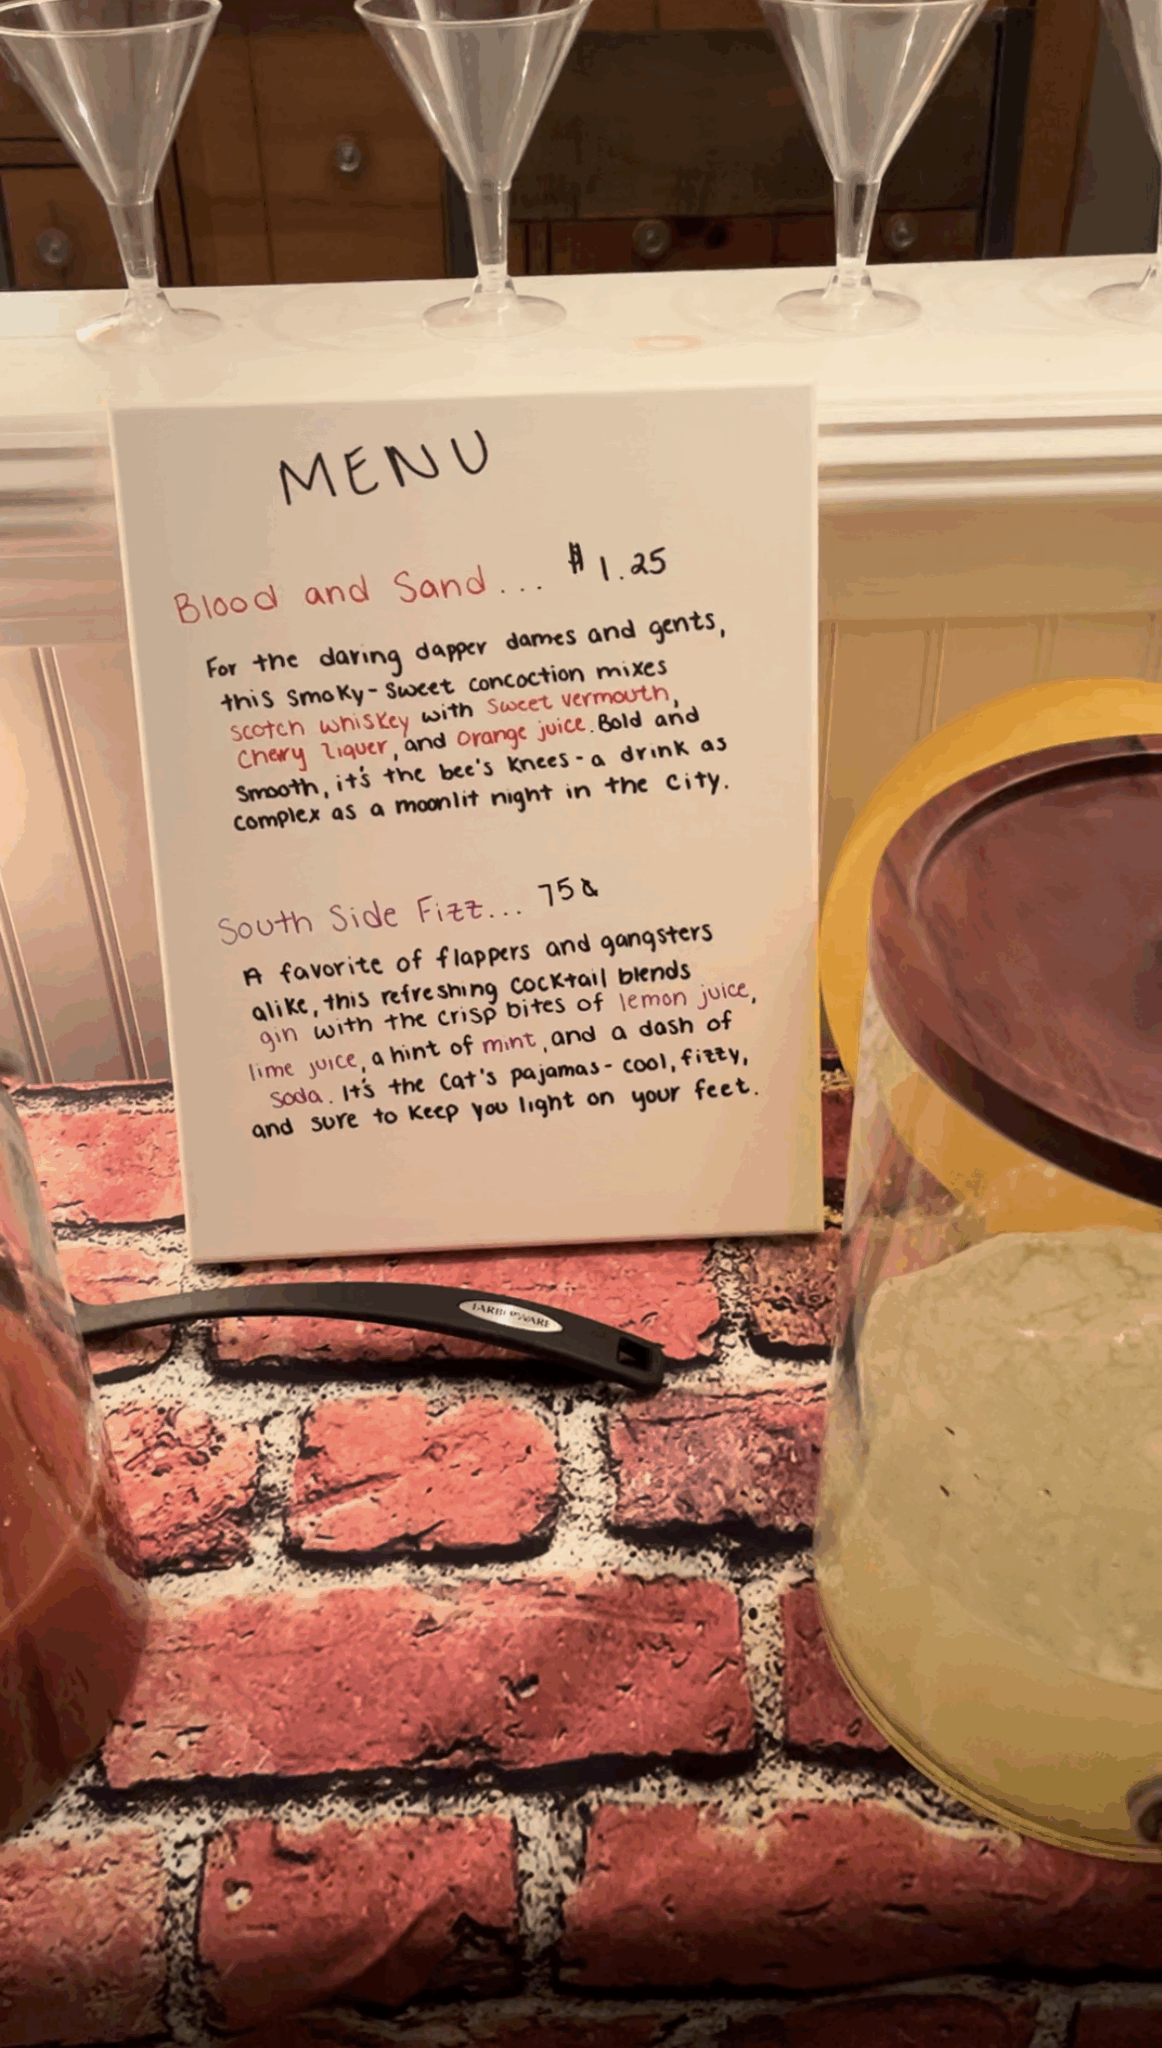 MENU
Blood and Sand... $1.25
For the daring dapper dames and gents,
this smoky-sweet concoction mixes
scotch whiskey with sweet vermouth,
Cherry liquer, and orange juice. Bold and
smooth, it's the bee's knees - a drink as
complex as a moonlit night in the city.
South Side Fizz... 75¢
A favorite of flappers and gangsters
alike, this refreshing cocktail blends
gin with the crisp bites of lemon juice,
lime juice, a hint of mint, and a dash of
soda. It's the cat's pajamas - cool, fizzy,
and sure to keep you light on your feet.
FARBERWARE